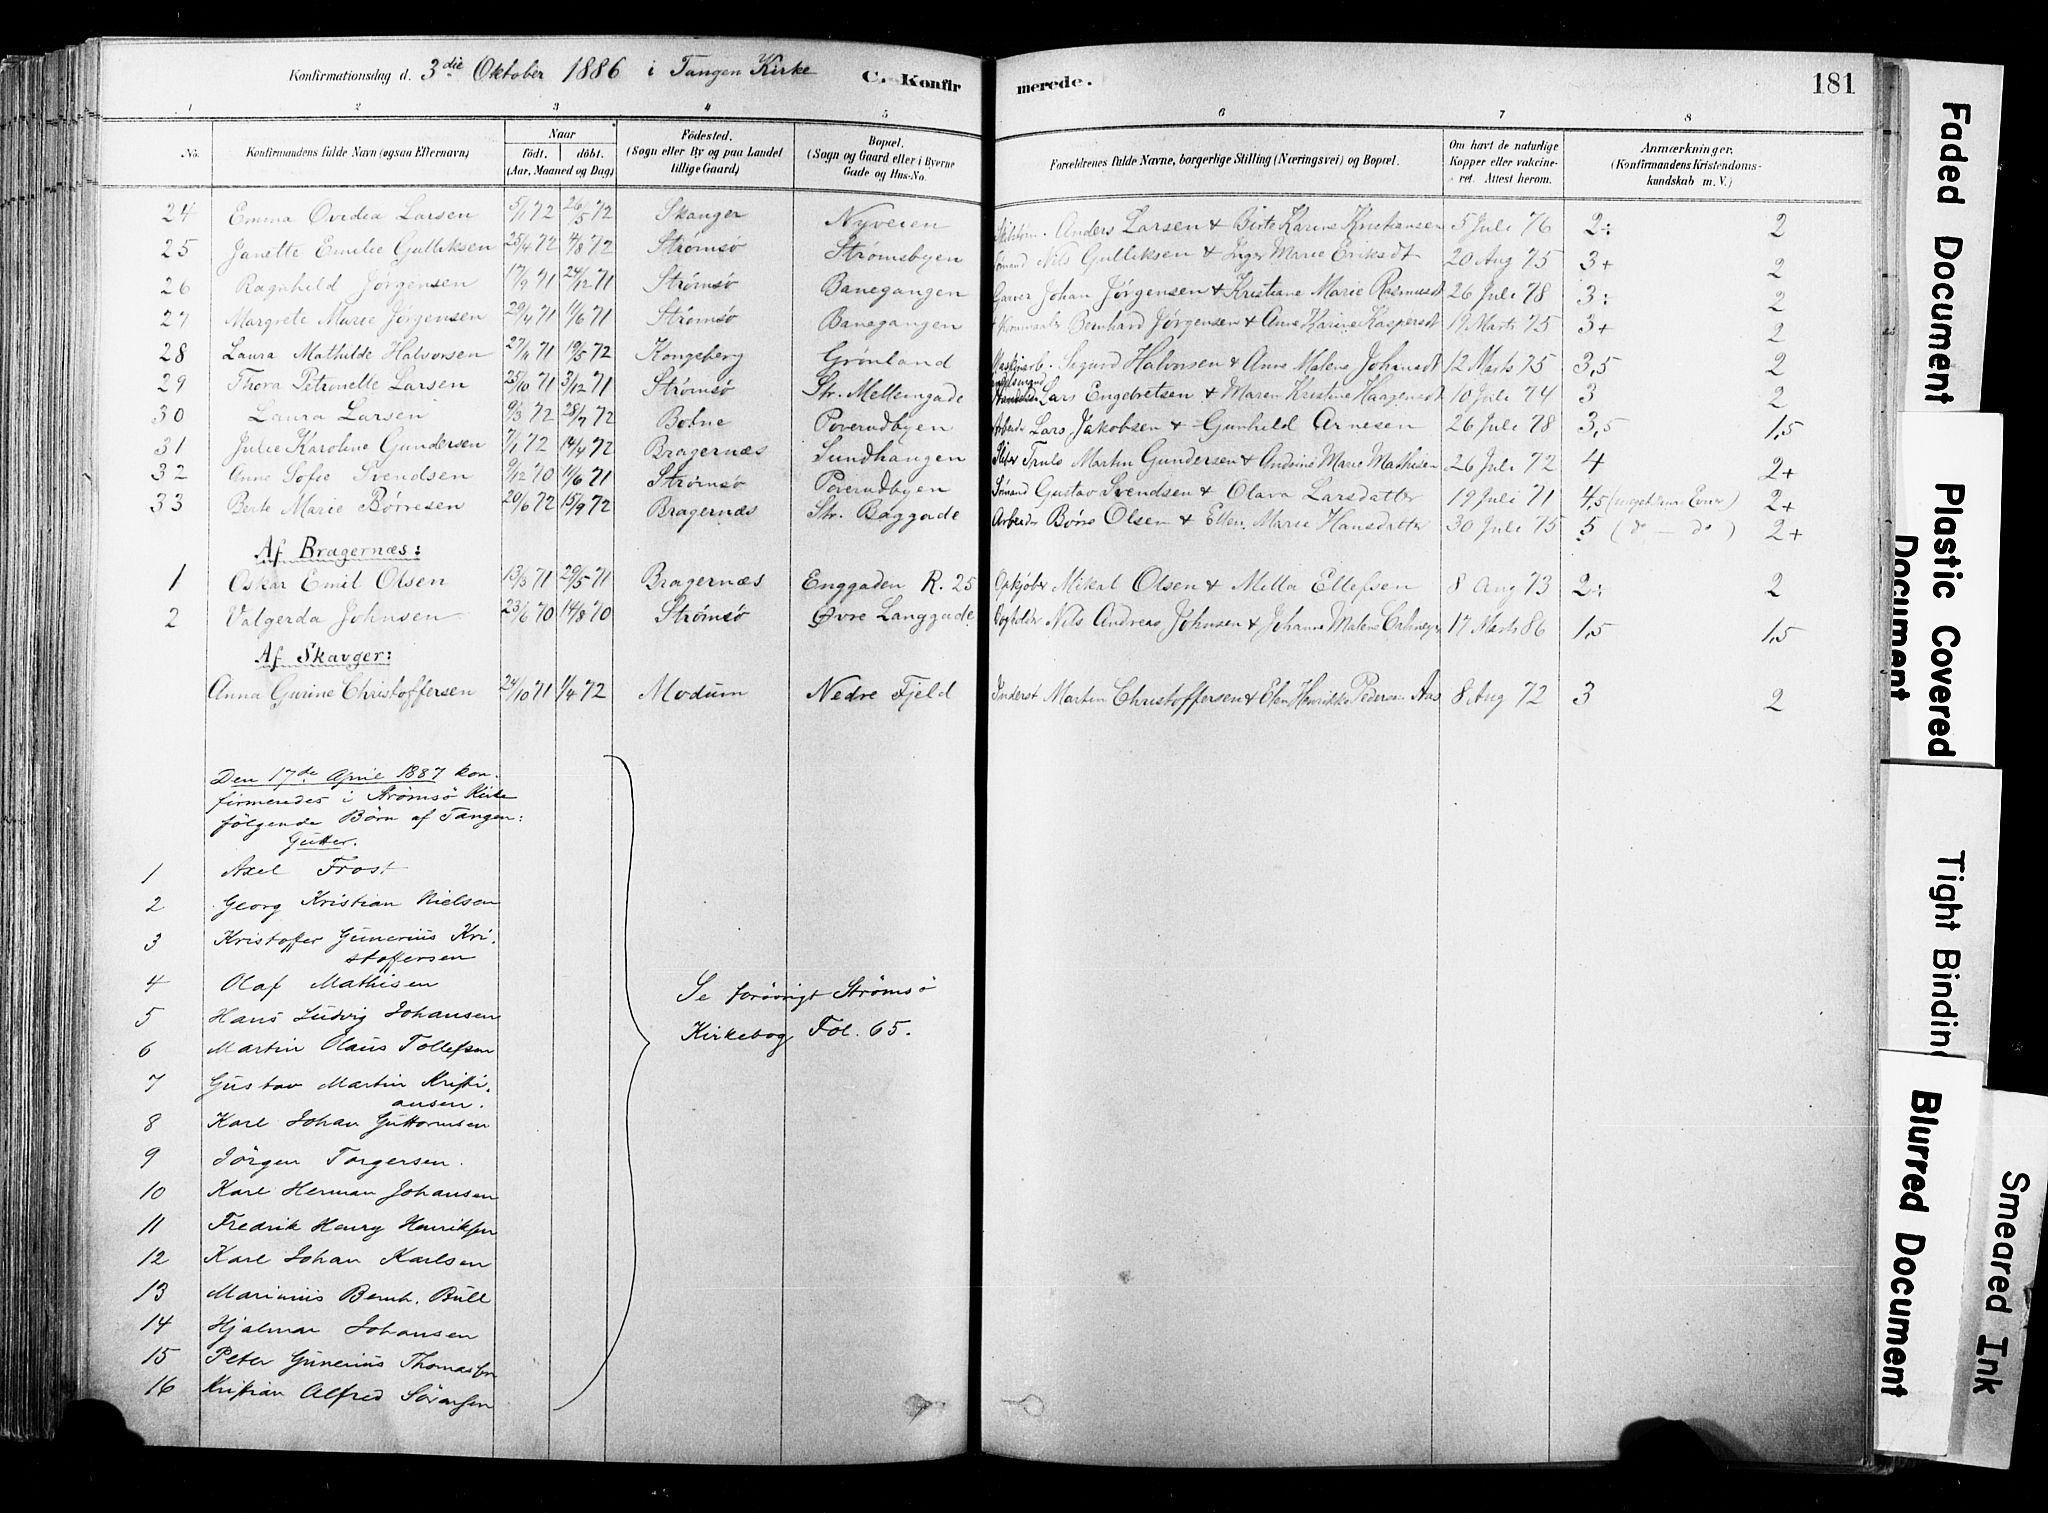 Konfirmationsdag d. 3die Oktober 1886 i Tangen Kirke C. Konfir merede. 181
1 2 3 4 5 6 7 8
No. Konfirmandens fulde Navn (ogsaa Efternavn) Naar Født. døbt. (Aar, Maaned og Dag) Fødested. (Sogn eller By og paa Landet tillige Gaard) Bopæl. (Sogn og Gaard eller i Byerne Gade og Hus-No. Forældrenes fulde Navne, borgerlige Stilling (Næringsvei) og Bopæl. Om havt de naturlige Kopper eller vakcineret. Attest herom. Anmærkninger. (Konfirmandens Kristendomskundskab m. V.)
24 Emma Ovidia Larsen 5/1 72 26/5 72 Skauger Nyveien Anders Larsen & Birte Karine Kristiansen 5 Juli 76 2÷ 2
25 Janette Emilie Gulliksen 25/4 72 11/8 72 Strømsø Strømsbyen Sømand Nils Gulliksen & Inger Marie Eriksdt 20 Aug 75 3+ 2
26 Ragnhild Jørgensen 17/9 71 24/12 71 Strømsø Banegangen Garver Johan Jørgensen & Kristiane Marie Rasmusdt 26 Juli 78 3÷ 2
27 Margrete Marie Jørgensen 29/4 71 11/6 71 Strømsø Banegangen Bernhard Jørgensen & Anne Karine Kaspersdt 19 Marts 75 3+ 2
28 Laura Mathilde Halvorsen 27/11 71 19/5 72 Kongsberg Grønland Maskinarb. Sigurd Halvorsen & Anne Malene Johansdt 12 Marts 75 3,5 2
29 Thora Petronette Larsen 25/10 71 3/12 71 Strømsø Str. Mellemgade Lars Engebretsen & Maren Kristine Haagensdt 10 Juli 74 3 2
30 Laura Larsen 9/3 72 28/7 72 Botne Poverudbyen Arbeider Lars Jakobsen & Gunhild Arnesen 26 Juli 78 3,5 1,5
31 Julie Karoline Gundersen 7/1 72 14/4 72 Bragernæs Sundhaugen Sliber Truls Martin Gundersen & Andrine Marie Mathisen 26 Juli 72 4 2+
32 Anne Sofie Svendsen 9/12 70 11/6 71 Strømsø Poverudbyen Sømand Gustav Svendsen & Olava Larsdatter 19 Juli 71 4,5 (meget smaa Evner) 2+
33 Berte Marie Børresen 20/6 72 15/9 72 Bragernæs Str. Baggade Arbeider Børre Olsen & Ellen Marie Hansdatter 30 Juli 75 5 (do — do) 2+
Af Bragernæs:
1 Oskar Emil Olsen 13/3 71 29/5 71 Bragernæs Enggaden R. 25 Opkjøber Mikal Olsen & Mella Ellefsen 8 Aug 73 2÷ 2
2 Valgerda Johnsen 23/6 70 14/8 70 Strømsø Øvre Langgade Bogholder Nils Andreas Johnsen & Johanne Malene 17 Marts 86 1,5 1,5
Af Skauger:
Anna Gurine Christoffersen 24/10 71 1/4 72 Modum Nedre Fjeld Inderst Martin Christoffersen & Elen Henrikke Pedersen Aas 8 Aug 72 3 2
Den 17de April 1887 kon-
firmeredes i Strømsø Kirke
følgende Børn af Tangen:
Gutter.
1 Axel Frost
2 Georg Kristian Nielsen
3 Kristoffer Gunerius Kri-
stoffersen
4 Olaf Mathisen
5 Hans Ludvig Johansen
6 Martin Olaus Tollefsen
7 Gustav Martin Kristi-
ansen.
8 Karl Johan Guttormsen
9 Jörgen Torgersen.
10 Karl Herman Johansen
11 Fredrik Henry Henriksen
12 Karl Johan Karlsen
13 Marinius Bernh. Bull
14 Hjalmar Johansen
15 Peter Gunerius Thomassen
16 Kristian Alfred Sörensen
Se forøvrigt Strømsø
Kirkebog Fol. 65.
Faded Document
Plastic Covered Document
Tight Binding
Blurred Document
Smeared Ink